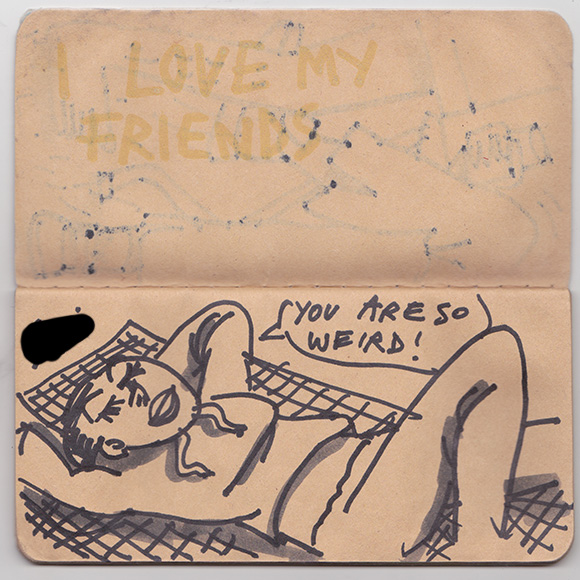 I LOVE MY
FRIENDS
YOU ARE SO
WEIRD!